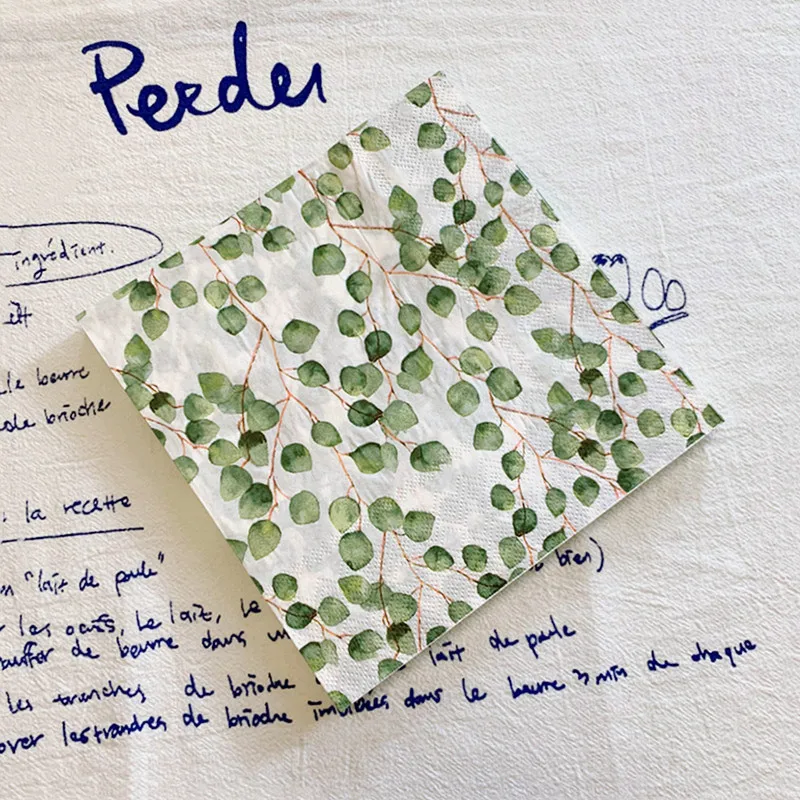 Perdu
ingrédient.
00
le beurre
de brioche
la recette
"lait de poule"
les oeufs, le lait, le
bien)
de beurre dans
lait de poule
les tranches de brioche
les tranches de brioche imbibées dans le beurre 3 min de chaque